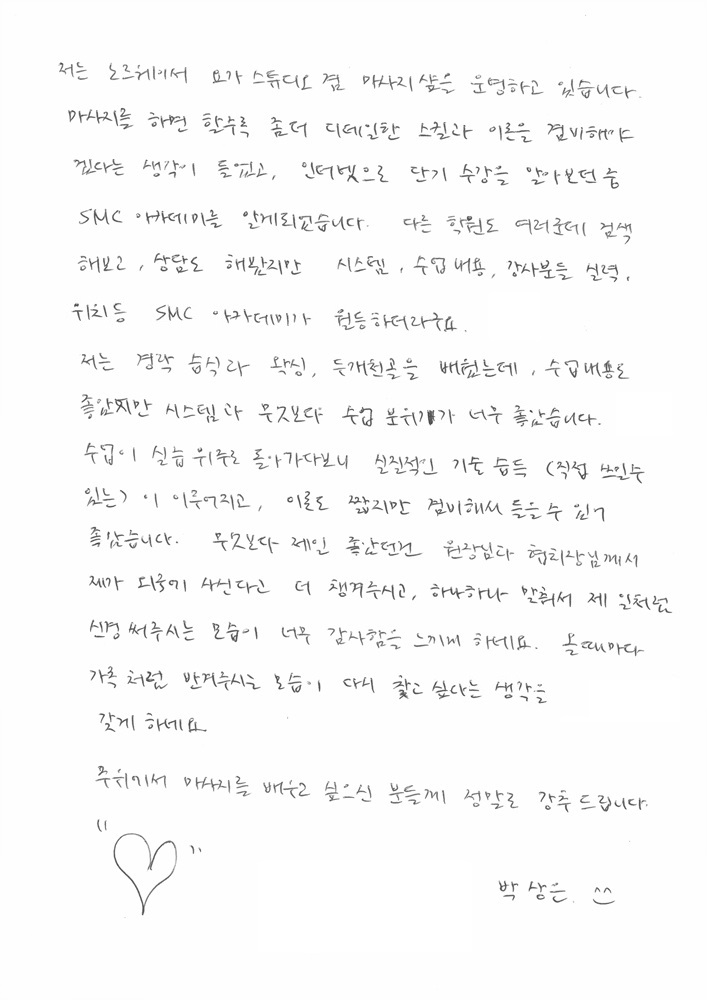 저는 노르웨이서 요가 스튜디오 겸 마사지샾을 운영하고 있습니다.
마사지를 하면 할수록 좀더 디테일한 스킬과 이론을 겸비해야
겠다는 생각이 들었고, 인터넷으로 단기 수강을 알아보던 중
SMC 아카데미를 알게되었습니다. 다른 학원도 여러군데 검색
해보고, 상담도 해봤지만 시스템, 수업내용, 강사분들 실력,
위치등 SMC 아카데미가 월등하더라구요.
저는 경락 습식과 왁싱, 두개천골을 배웠는데, 수업내용도
좋았지만 시스템과 무엇보다 수업 분위기가 너무 좋았습니다.
수업이 실습 위주로 돌아가다보니 실질적인 기술 습득 (직접 쓰일수
있는) 이 이루어지고, 이론도 짧지만 겸비해서 들을수 있어
좋았습니다. 무엇보다 제일 좋았던건 원장님과 협회장님께서
제가 외국에 사신다고 더 챙겨주시고, 하나하나 맞춰서 제 일처럼
신경써주시는 모습이 너무 감사함을 느끼게 하네요. 올때마다
가족처럼 반겨주시는 모습이 다시 찾고 싶다는 생각을
갖게 하네요
주위에서 마사지를 배우고 싶으신 분들께 정말로 강추 드립니다.
" "
박상은. ^^